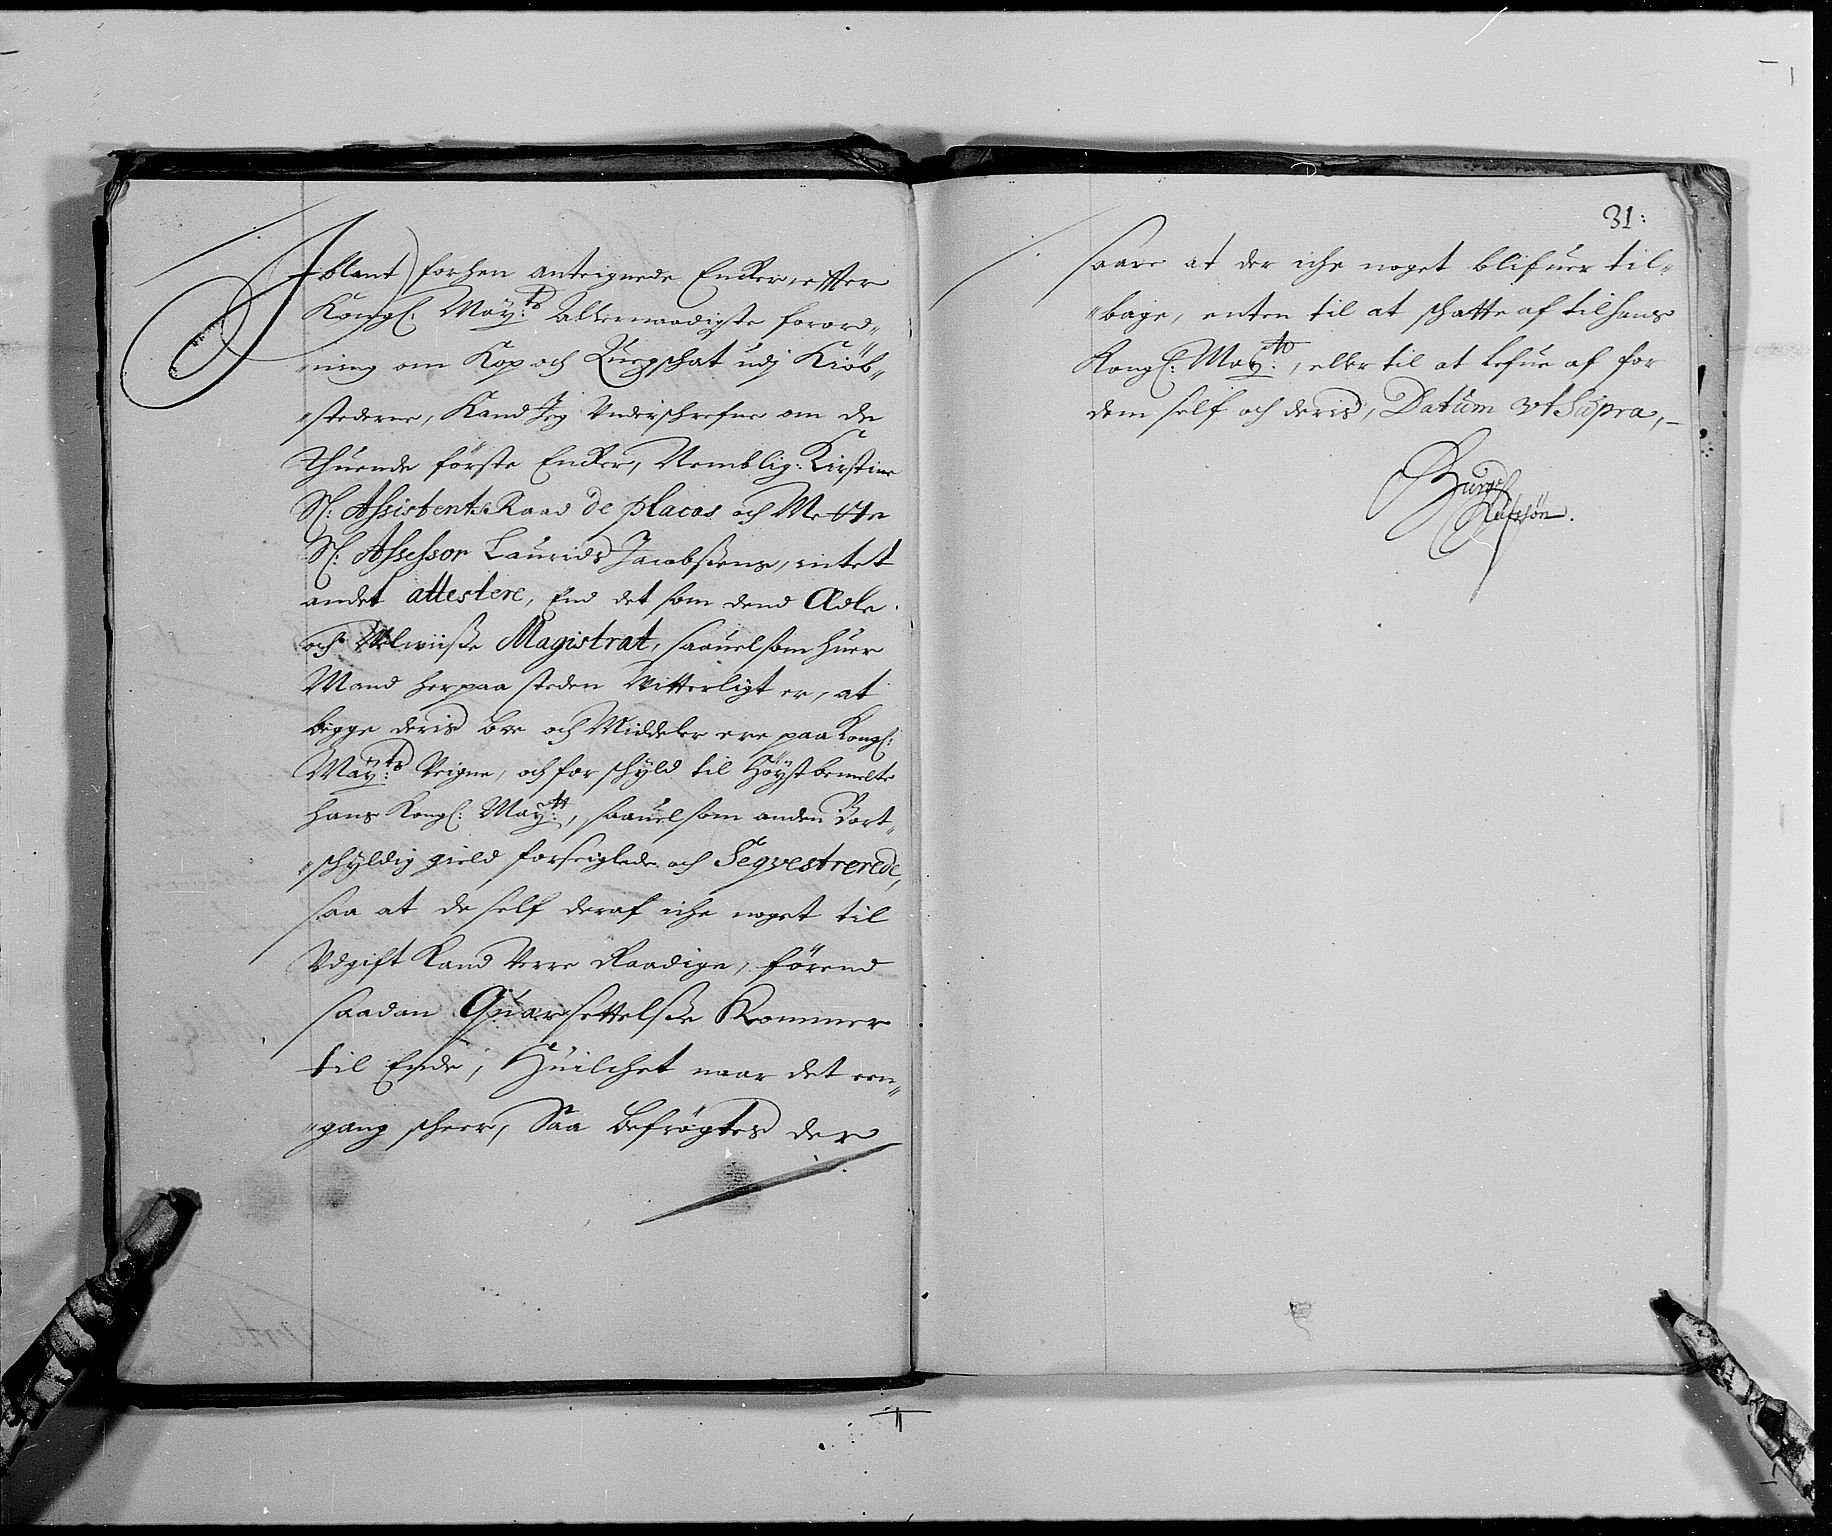 Iblant forhen anteignede Encker effter
Kongl: May:ts Allernaadigste forord„
„ning om Kop och Qvegschat udj Kiöb„
„stederne, Kand Jeg Underschrefne om de
Thuende förste Encker, Nemblig: Kirstine
Sl: Assistentz Raad de placas och Mette
Sl: Assessor Laurids Jacobsens, intet
andet attestere, End det som dend Adle
och Velwiisse Magistrat, saauelsom huer
Mand her paa steden Vitterligt er, at
begge deris boe och Middeler ere paa Kongl:
May:ts Veigne, och for schyld til Höyst bemelte
hans Kongl: May:tt, saauelsom anden Bort„
„schyldig gield forseiglede och Seqvestrerede,
saa at de self deraf iche noget til
Udgift Kand Verre Raadige, förend
saadan Quarsettelsse Kommer
til Ende, Huilchet naar det een„
„gang scheer, Saa befrögtes der
31:
saare at der iche noget blifuer til„
„bage, enten til at schatte af til hans
Kongl: May:tt, eller til at lefue af for
dem self och deris, Datum ut Supra,